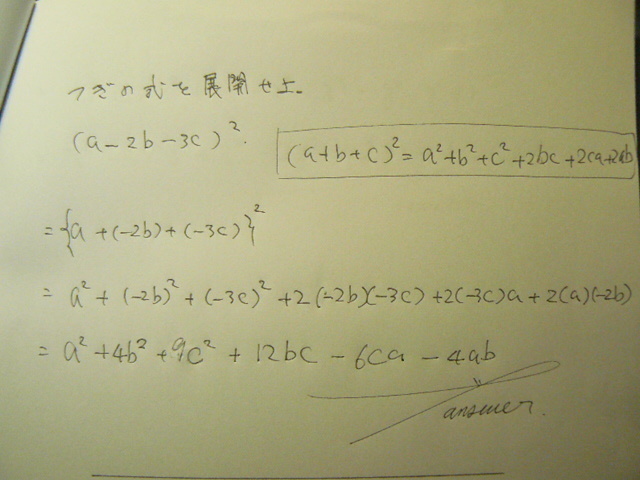 つぎの式を展開せよ。
(a-2b-3c)².
(a+b+c)²=a²+b²+c²+2bc+2ca+2ab
={a+(-2b)+(-3c)}²
=a²+(-2b)²+(-3c)²+2(-2b)(-3c)+2(-3c)a+2(a)(-2b)
=a²+4b²+9c²+12bc-6ca-4ab
answer.